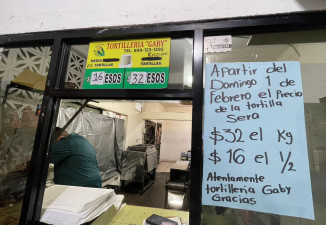 TORTILLERIA "GABY"
MEDIO TORTILLAS
TORTILLAS
$16 ESOS $32 ESOS
Apartir del
Domingo 1 de
Febrero el Precio
de la tortilla
Sera
$32 el Kg
$16 el 1/2
Atenamente
tortilleria Gaby
Gracias